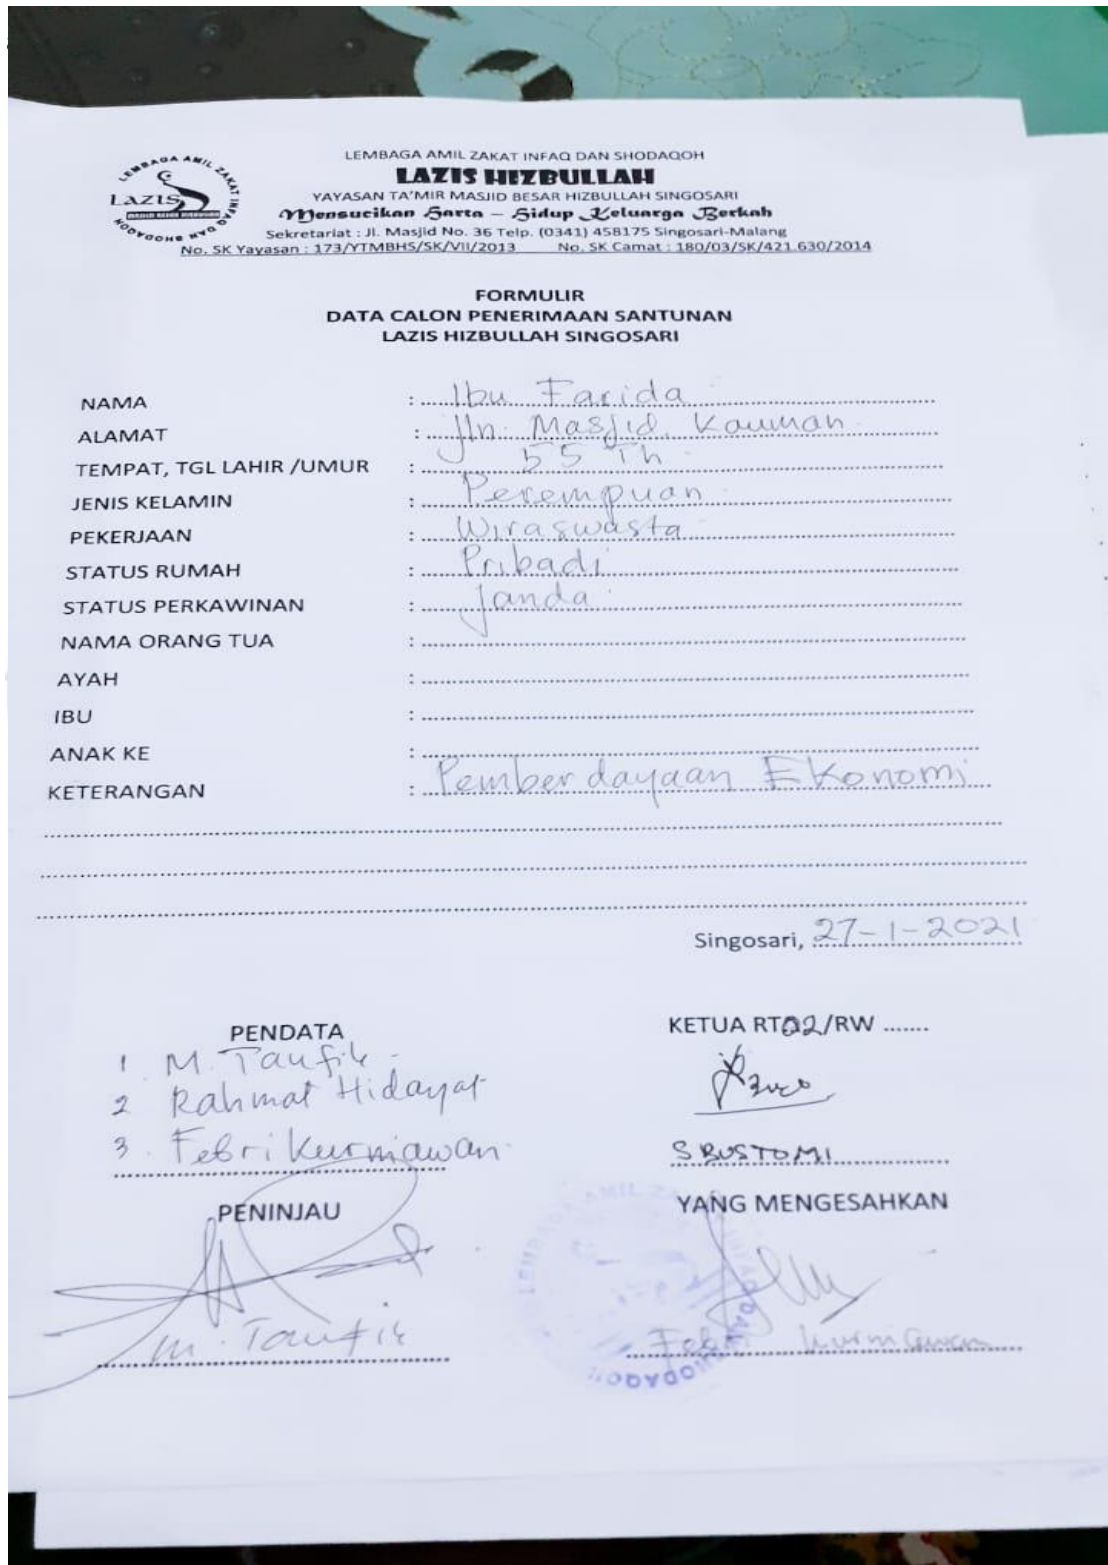 LEMBAGA AMIL ZAKAT INFAQ DAN SHODAQOH
LAZIS
LEMBAGA AMIL ZAKAT INFAQ DAN SHODAQOH
LAZIS HIZBULLAH
YAYASAN TA'MIR MASJID BESAR HIZBULLAH SINGOSARI
Mensucikan Harta – Hidup Keluarga Berkah
Sekretariat : Jl. Masjid No. 36 Telp. (0341) 458175 Singosari-Malang
No. SK Yayasan : 173/YTMBHS/SK/VII/2013 No. SK Camat : 180/03/SK/421.630/2014
FORMULIR
DATA CALON PENERIMAAN SANTUNAN
LAZIS HIZBULLAH SINGOSARI
NAMA : Ibu Farida
ALAMAT : Jln. Masjid. Kauman
TEMPAT, TGL LAHIR /UMUR : 55 Th
JENIS KELAMIN : Perempuan
PEKERJAAN : Wiraswasta
STATUS RUMAH : Pribadi
STATUS PERKAWINAN : Janda
NAMA ORANG TUA :
AYAH :
IBU :
ANAK KE :
KETERANGAN : Pemberdayaan Ekonomi
Singosari, 27-1-2021
PENDATA
1. M. Taufik
2 Rahmat Hidayat
3. Febri Kurniawan
KETUA RT02/RW .......
S BUSTOMI
PENINJAU
M. Taufik
YANG MENGESAHKAN
Febri Kurniawan